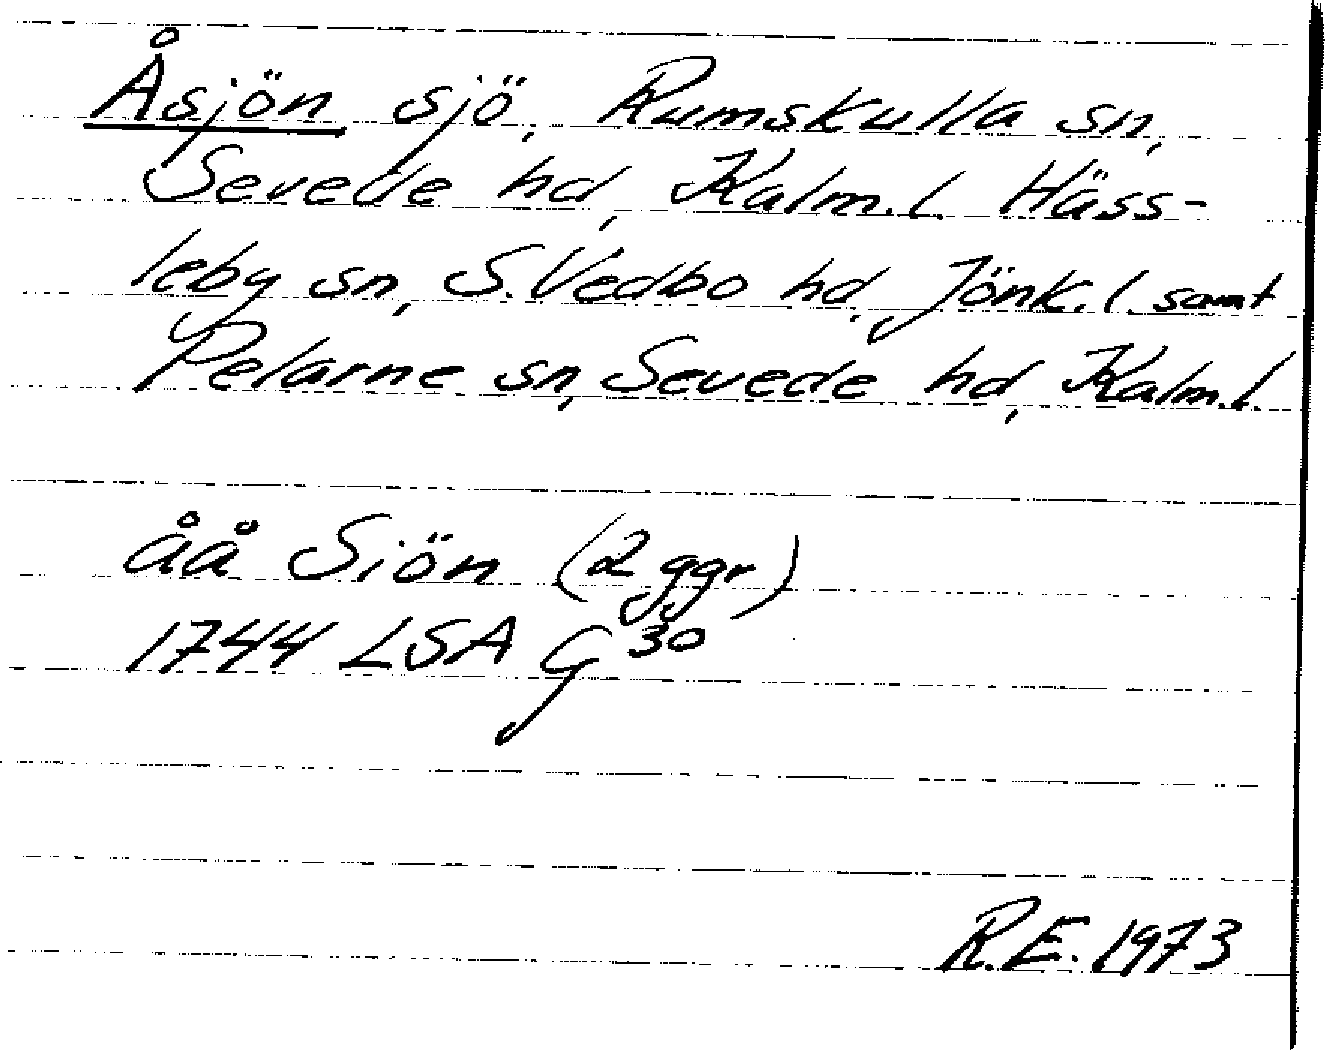 Åsjön sjö, Rumskulla sn,
Sevede hd, Kalm.l. Häss-
leby sn, S.Vedbo hd, Jönk.l. samt
Pelarne sn, Sevede hd, Kalm.l.
åå Siön (2 ggr)
1744 LSA G 30
R.E. 1973